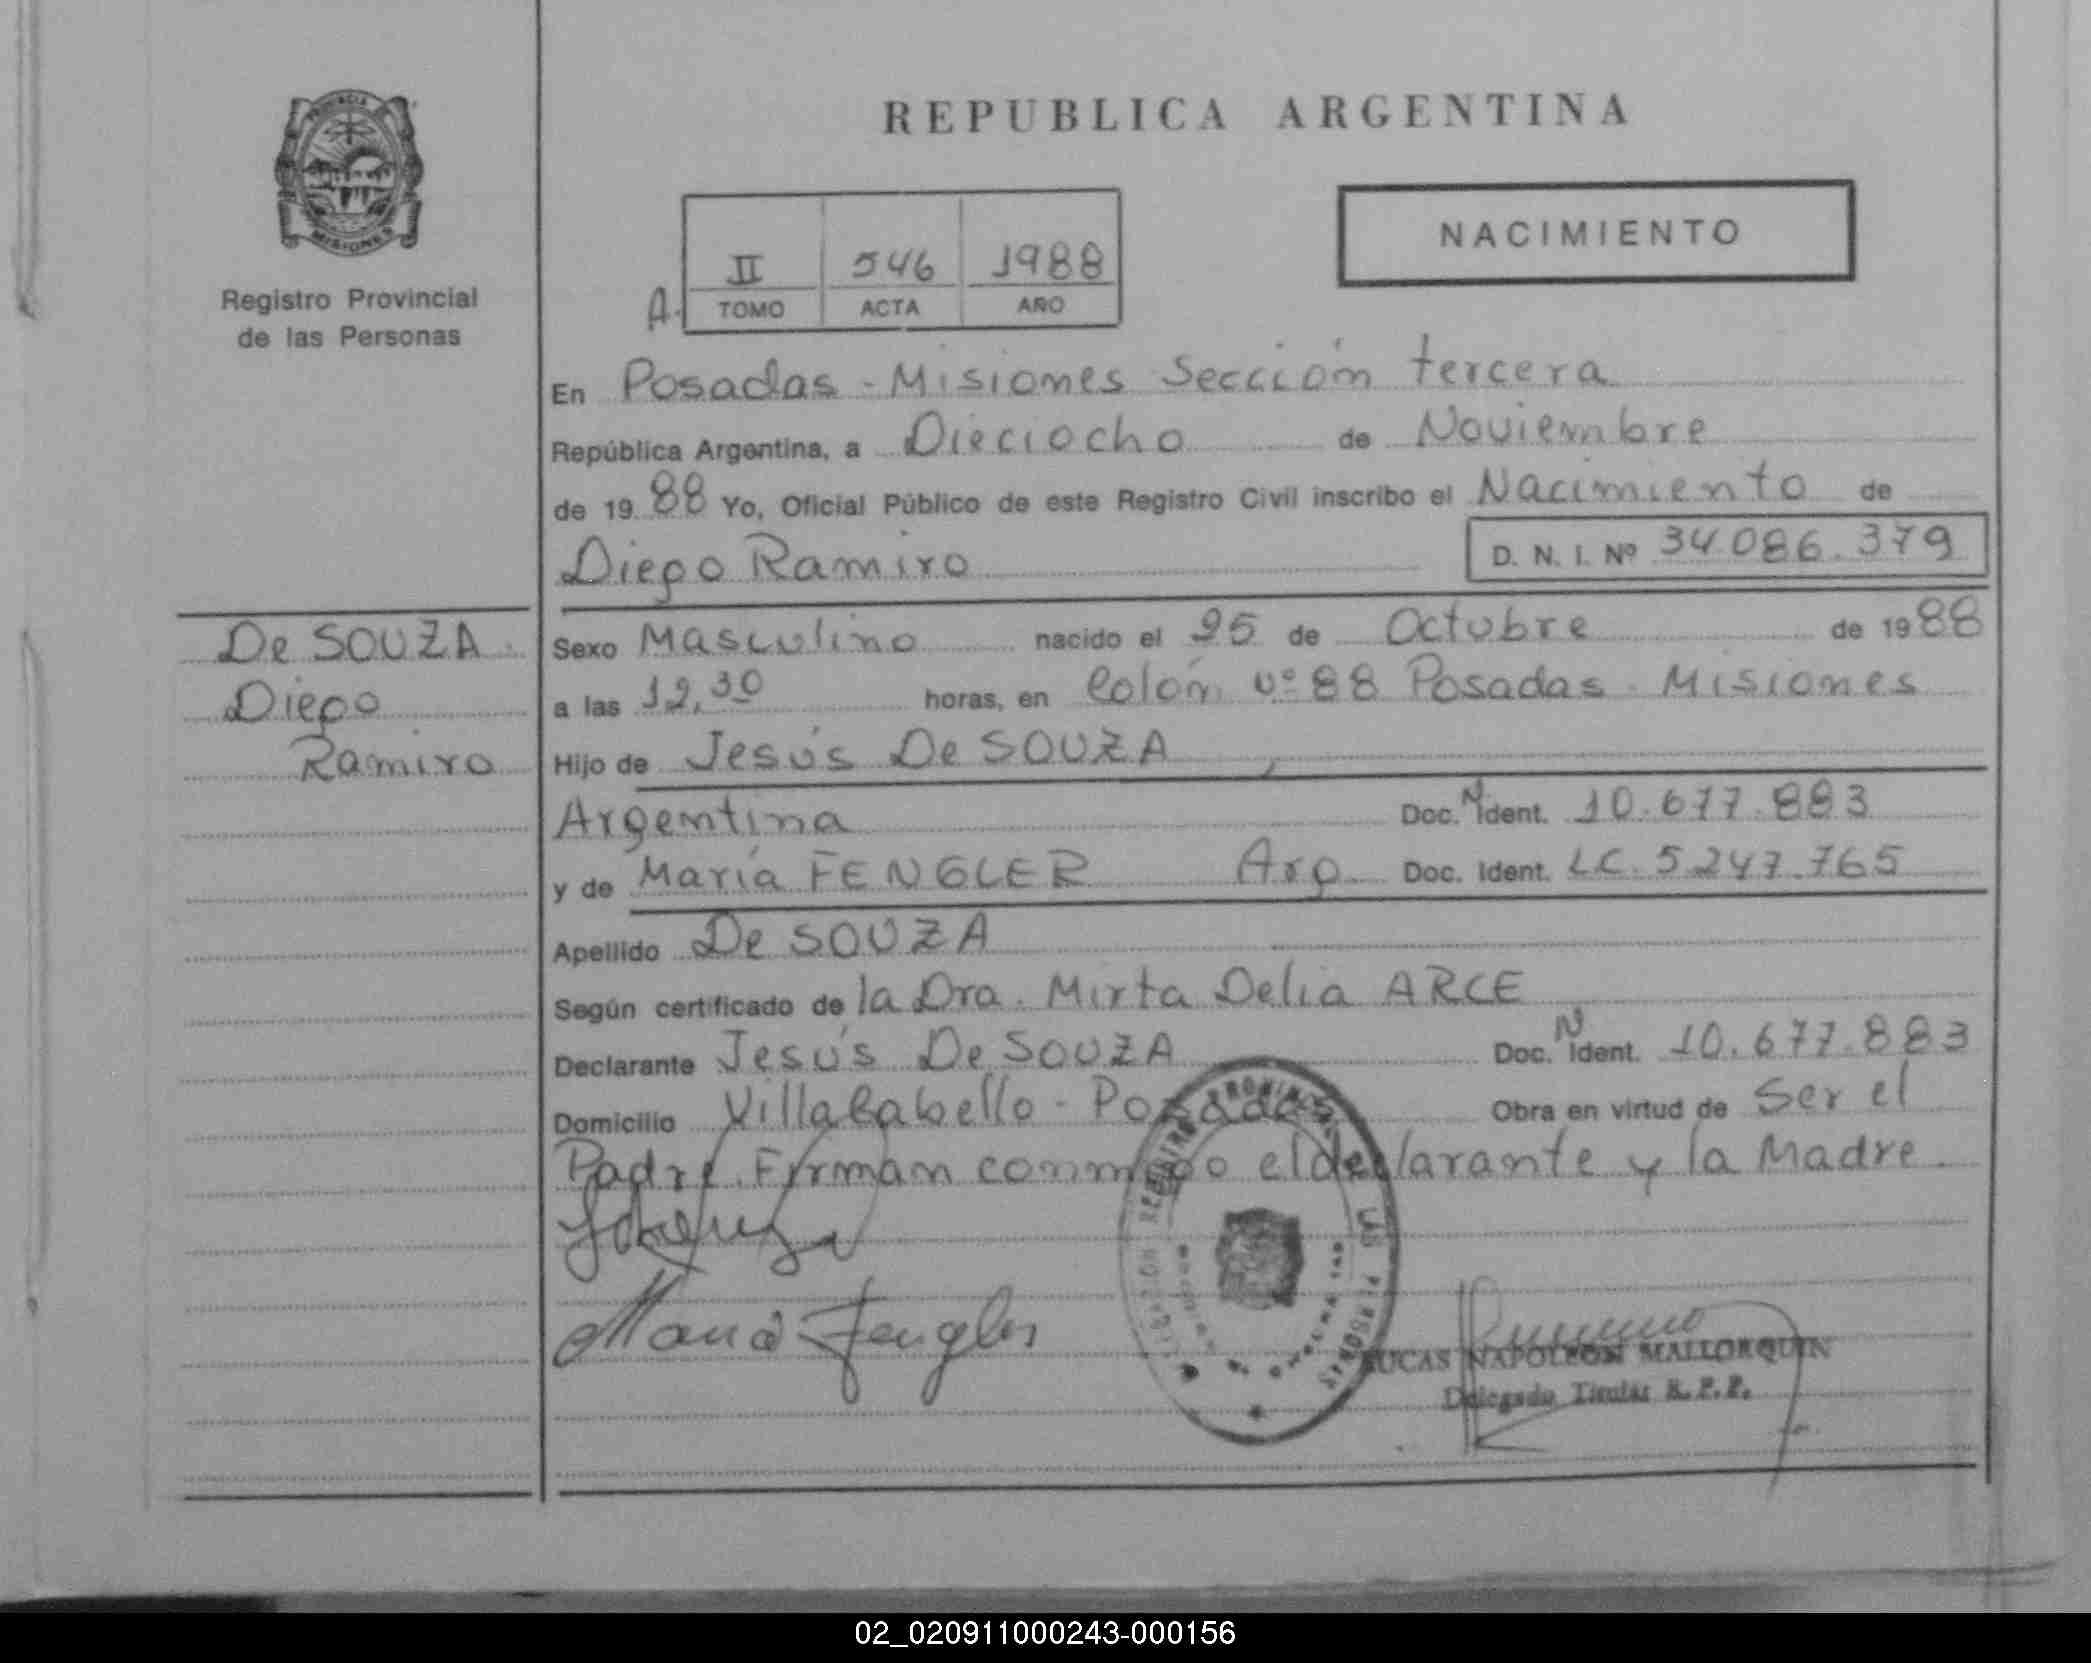 PROVINCIA
MISIONES
Registro Provincial
de las Personas
REPUBLICA ARGENTINA
NACIMIENTO
II 546 1988
A. TOMO ACTA AÑO
En Posadas - Misiones Sección tercera
República Argentina, a Dieciocho de Noviembre
de 1988 Yo, Oficial Público de este Registro Civil inscribo el Nacimiento de
Diego Ramiro D. N. I. Nº 34.086.379
De SOUZA
Diego
Ramiro
Sexo Masculino nacido el 25 de Octubre de 1988
a las 12,30 horas, en Colón nº 88 Posadas - Misiones
Hijo de Jesús De SOUZA,
Argentina Doc. N Ident. 10.677.883
y de María FENGLER Arg. Doc. Ident. LC. 5.247.765
Apellido De SOUZA
Según certificado de la Dra. Mirta Delia ARCE
Declarante Jesús De SOUZA Doc. N Ident. 10.677.883
Domicilio Villa Cabello - Posadas Obra en virtud de Ser el
Padre. Firman conmigo el declarante y la Madre.
María Fengler
LUCAS NAPOLEON MALLORQUIN
Delegado Titular R. P. P.
02_020911000243-000156